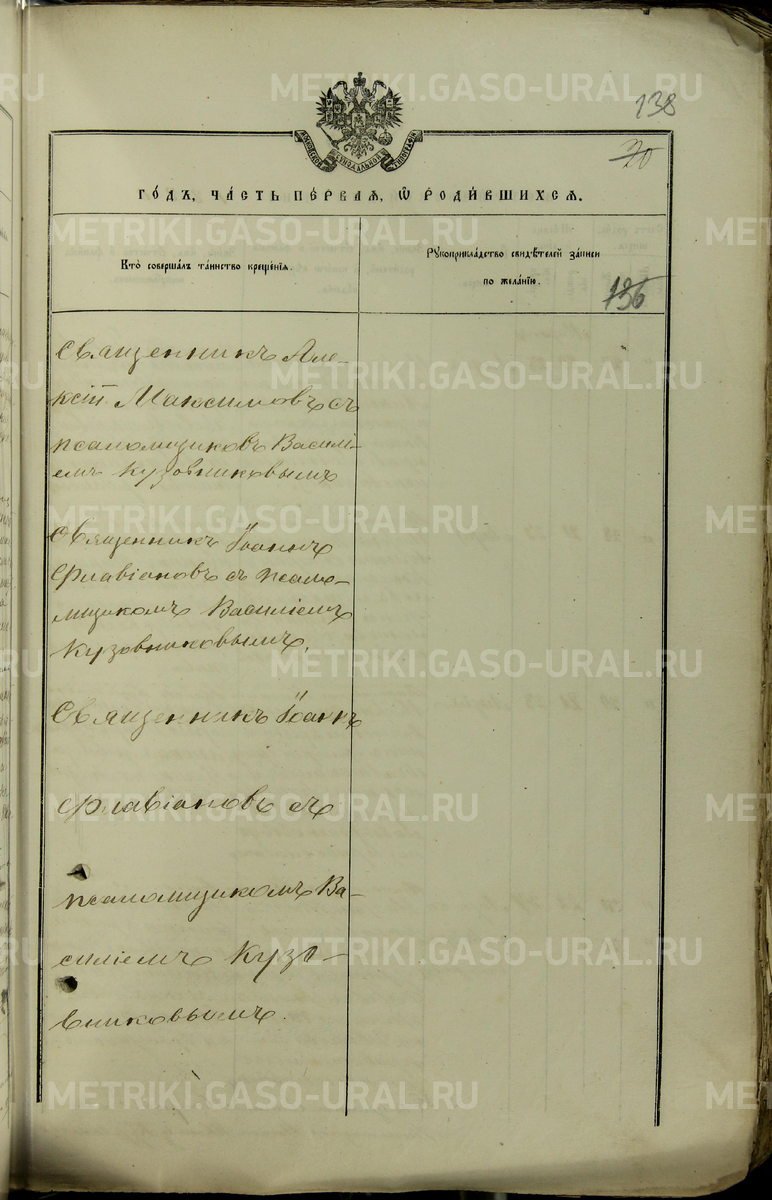 138
70
МОСКОВСКОЙ СѴНОДАЛЬНОЙ ТИПОГРАФІИ
ГО́ДЪ, ЧА́СТЬ ПЕ́РВАѦ, Ѡ҆ РОДИ́ВШИХСѦ.
Кто̀ соверша́лъ та́инство креще́нїѧ.
Рꙋкоприкла́дство свидѣ́телей за́писи
по жела́нїю.
136
Священникъ Але-
ксій Максимовъ съ
псаломщиковъ Василі-
емъ Кузовниковымъ
Священникъ Іоаннъ
Флавіановъ съ псало-
мщикомъ Василіемъ
Кузовниковымъ.
Священникъ Іоаннъ
Флавіановъ съ
псаломщикомъ Ва-
силіемъ Кузо-
вниковымъ.
METRIKI.GASO-URAL.RU